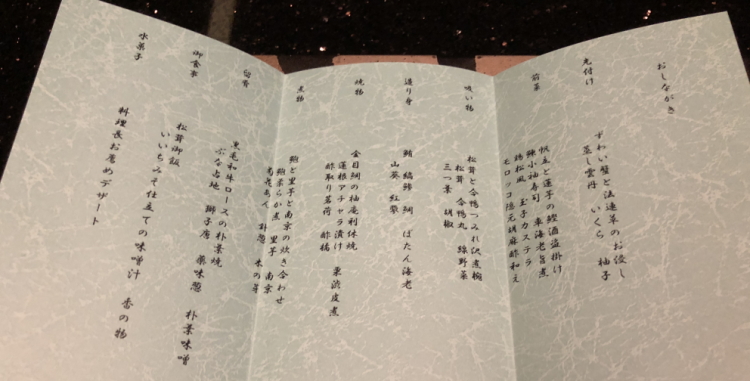 おしながき
先付け
ずわい蟹と法連草のお浸し
蒸し雲丹 いくら 柚子
前菜
帆立と蓮芋の鰹酒盗掛け
鰊小袖寿司 車海老旨煮
鶏松風 玉子カステラ
モロッコ隠元胡麻酢和え
吸い物
松茸と合鴨つみれ沢煮椀
松茸 合鴨丸 絲野菜
三つ葉 胡椒
造り身
鮪 縞鯵 鯛 ぼたん海老
山葵 紅蓼
焼物
金目鯛の柚庵利休焼
蓮根アチャラ漬け 栗渋皮煮
酢取り茗荷 酢橘
煮物
鮑と里芋と南京の炊き合わせ
鮑柔らか煮 里芋 南京
針葱 木の芽
留肴
黒毛和牛ロースの朴葉焼
ぶな占地 獅子唐 薬味葱 朴葉味噌
御食事
松茸御飯
いいちみそ仕立ての味噌汁 香の物
水菓子
料理長お薦めデザート